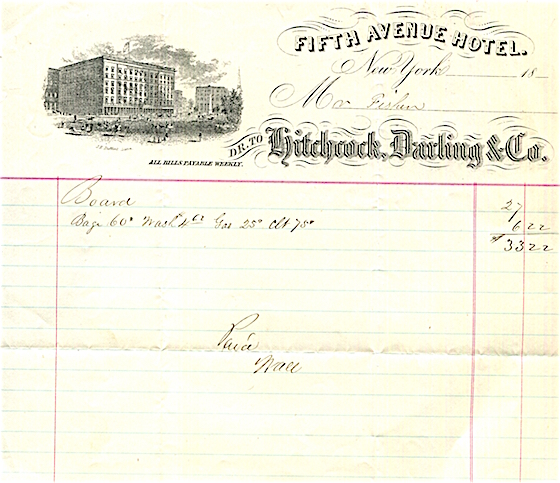 FIFTH AVENUE HOTEL.
New York 18
Mr Fisher
DR. TO Hitchcock, Darling & Co.
ALL BILLS PAYABLE WEEKLY.
Board 27
Bage 60c Wash 4 Gas 25c 75c 6 22
$33 22
Paid